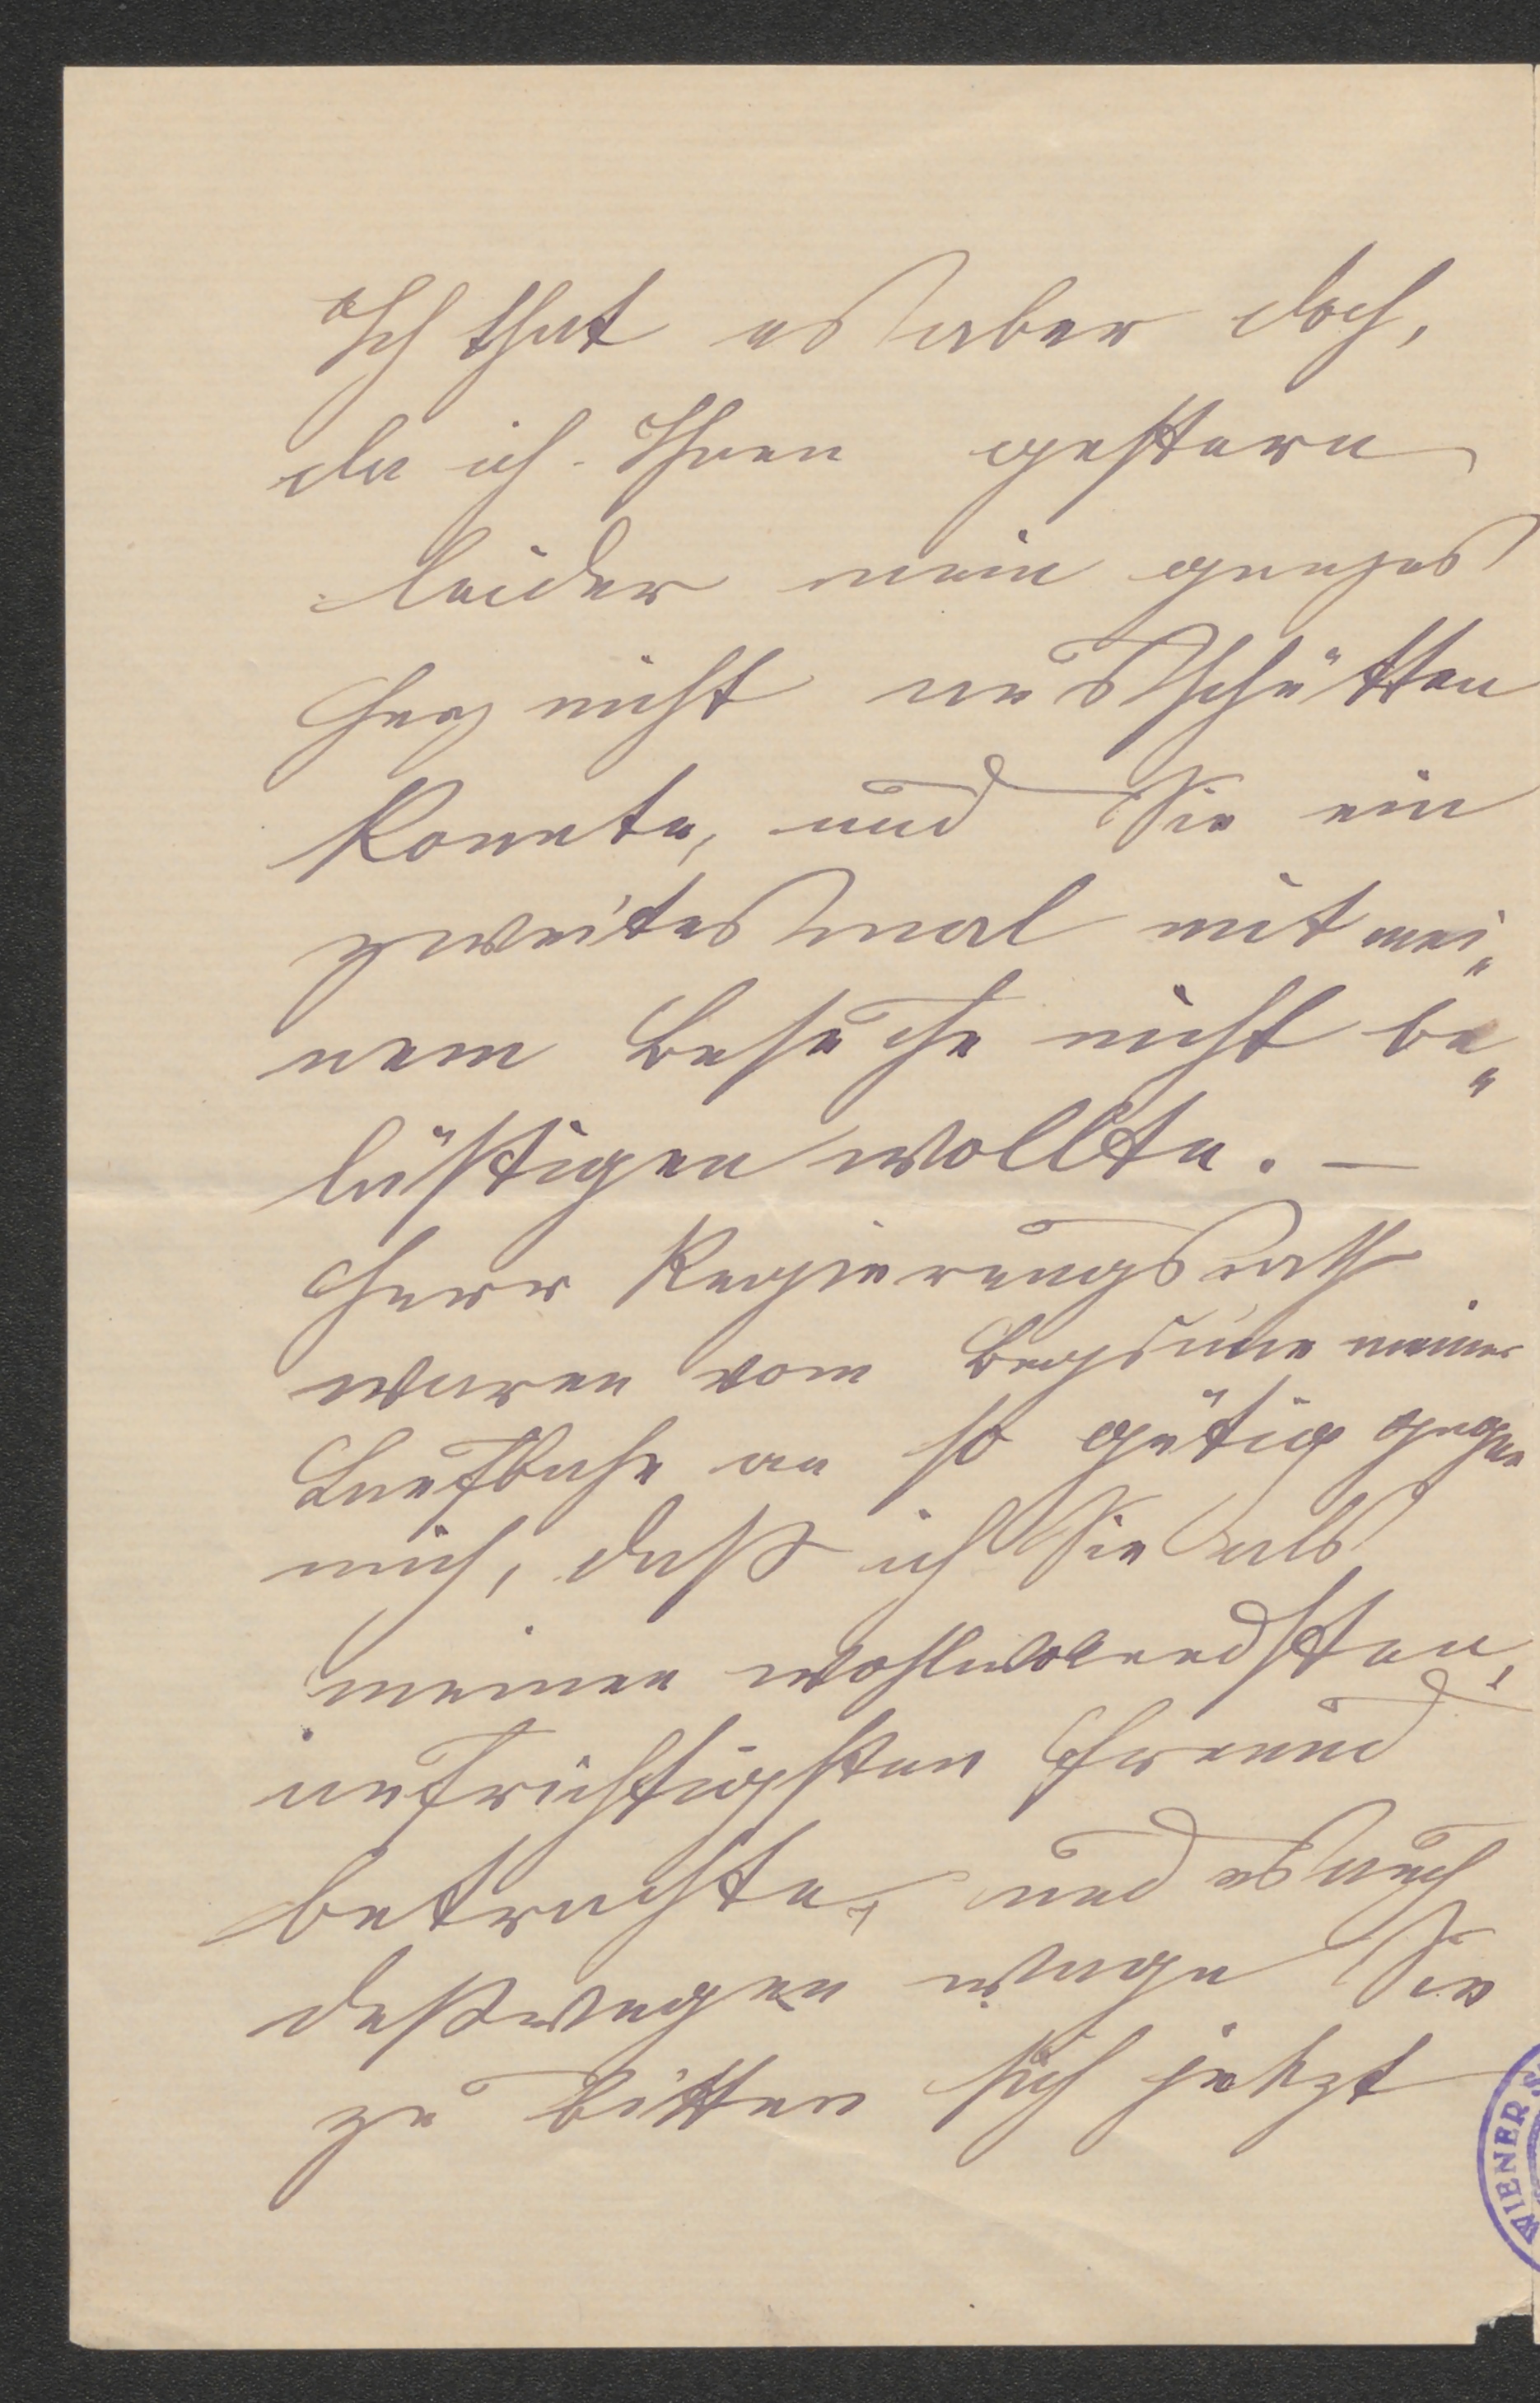 Ich that es aber doch,
da ich Ihnen gestern
leider mein ganzes
Herz nicht ausschütten
konnte, und Sie ein
zweites Mal mit mei„
nem Besuche nicht be„
lästigen wollte. —
Herr Regierungsrath
waren vom Beginne meiner
Laufbahn an so gütig gegen
mich, daß ich Sie als
meinen wohlwollendsten,
aufrichtigsten Freund
betrachte, und es auch
deßwegen wage Sie
zu bitten sich jetzt
WIENER